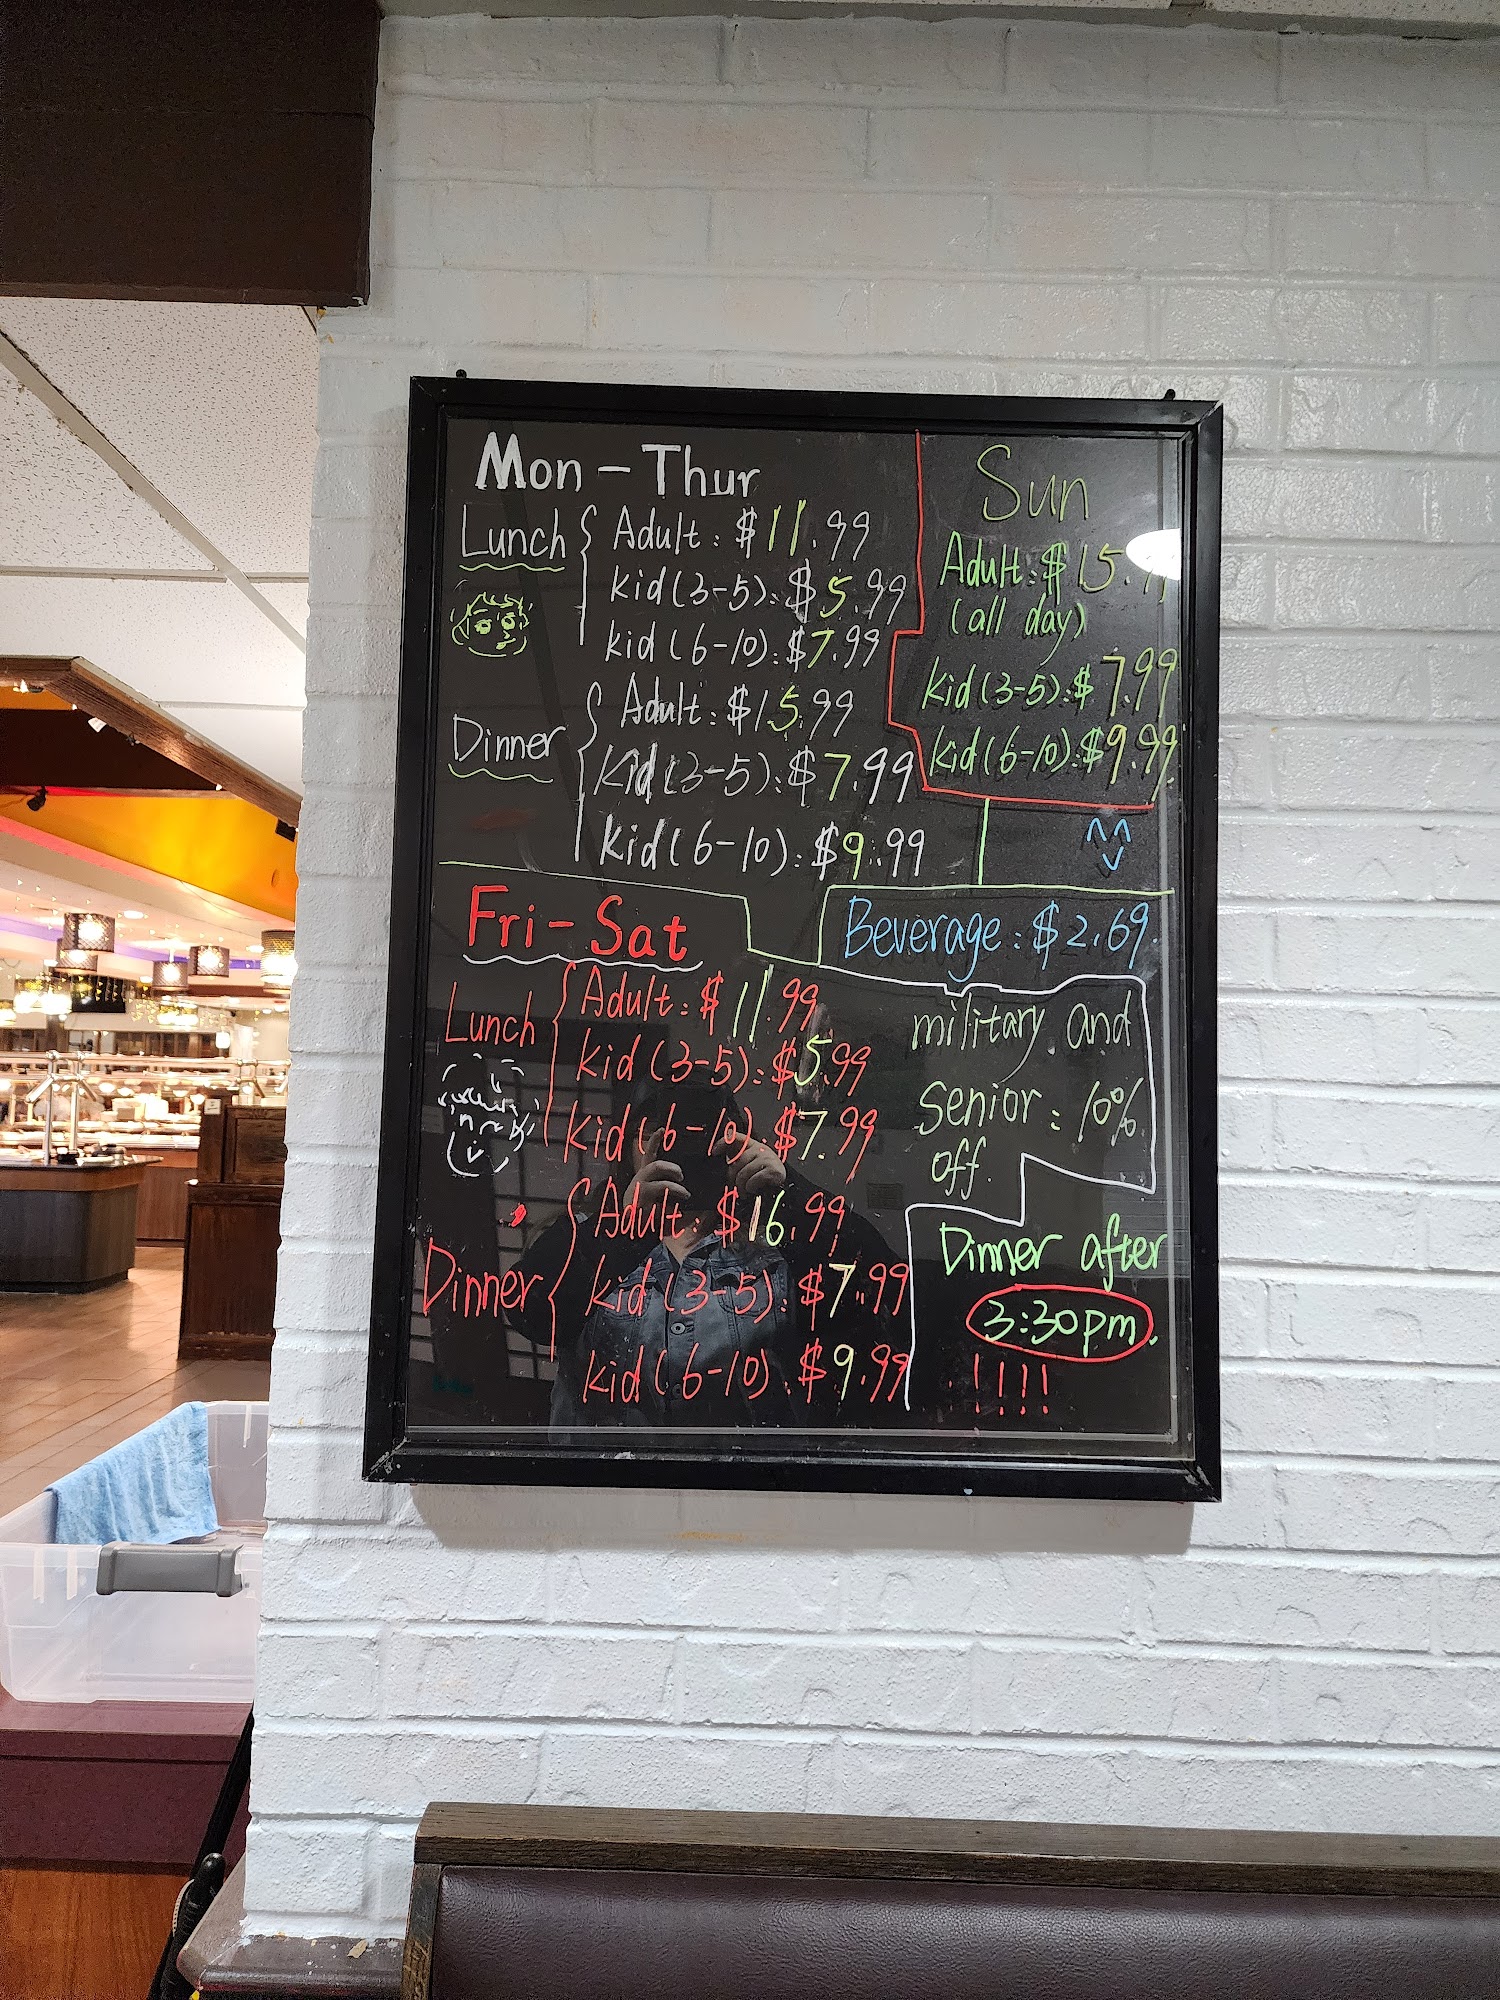 Mon - Thur
Lunch
Adult: $11.99
kid (3-5): $5.99
kid (6-10): $7.99
Dinner
Adult: $15.99
Kid (3-5): $7.99
kid (6-10): $9.99
Sun
Adult: $15.
(all day)
kid (3-5): $7.99
kid (6-10): $9.99
Beverage: $2.69.
Fri - Sat
Lunch
Adult: $11.99
kid (3-5): $5.99
kid (6-10): $7.99
Dinner
Adult: $16.99
kid (3-5): $7.99
kid (6-10): $9.99
military and
Senior: 10%
off.
Dinner after
3:30pm.
!!!!